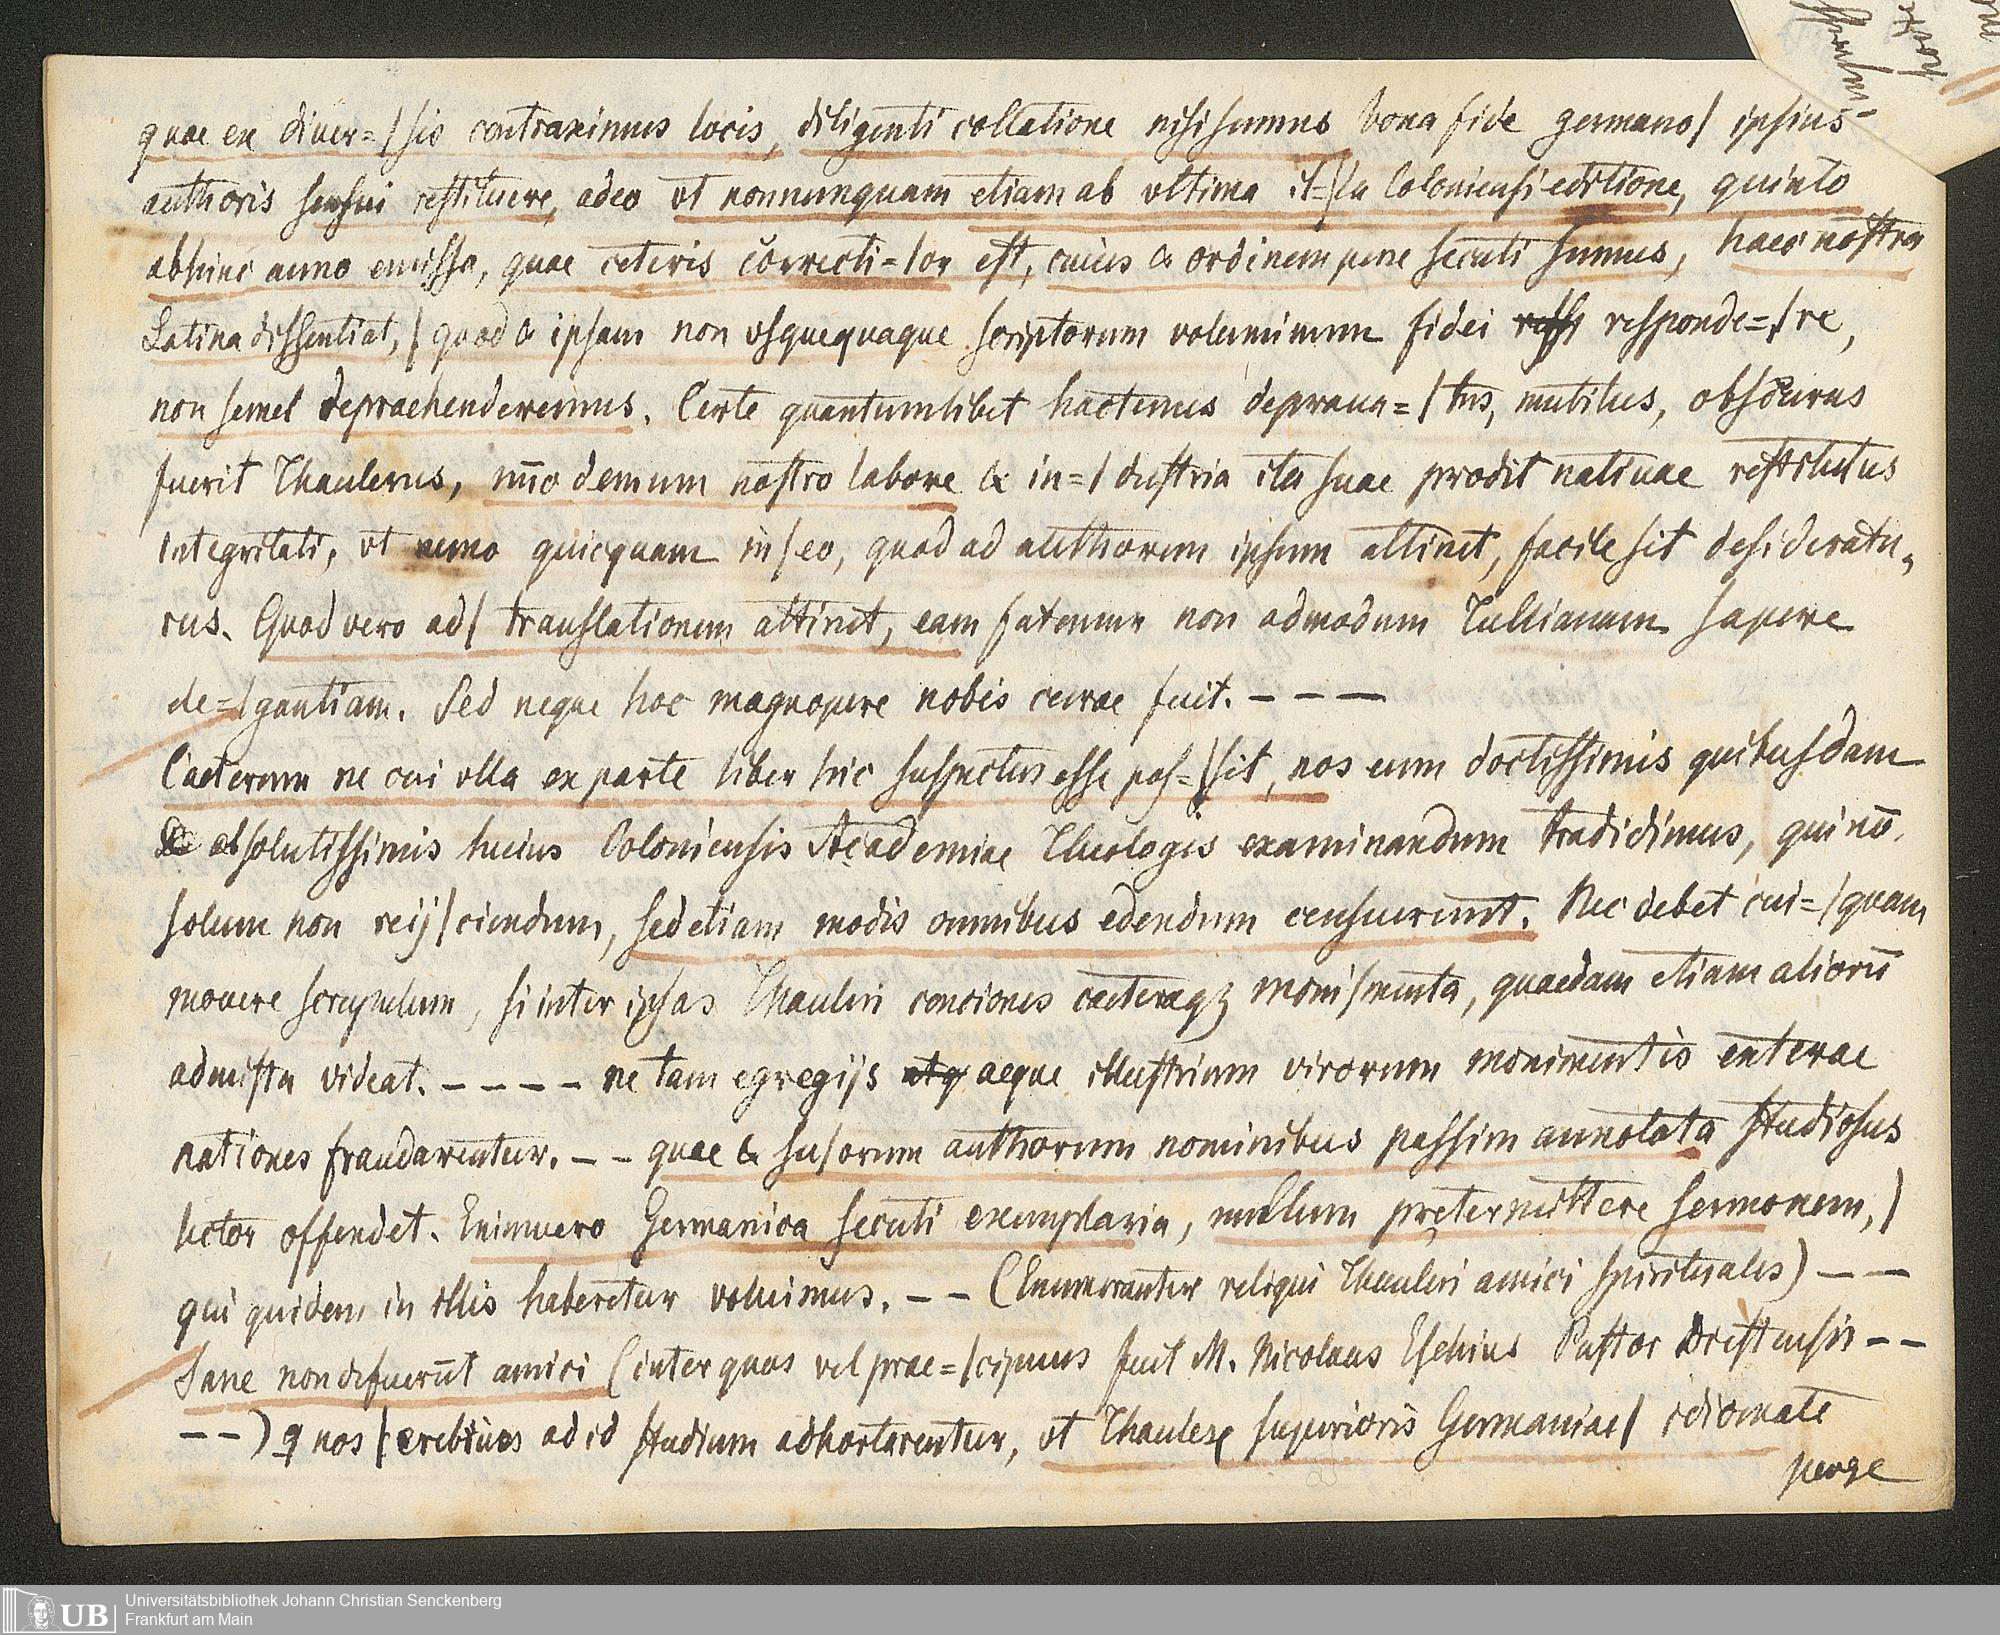 quae ex diuer=/sis contraximus locis, diligenti collatione nisi sumus bona fide germano/ ipsius
authoris sensui restituere, adeo vt nonnunquam etiam ab vltima il=/la Coloniensi editione, quinto
abhinc anno emissa, quae ceteris correcti=/or est, cuius & ordinem pene secuti sumus, haec nostra
Latina dissentiat,/ quod & ipsam non vsquequaque scriptorum voluminum fidei responde=/re,
non semel depraehenderemus. Certe quantumlibet hactenus deprana=/tus, mutilus, obscurus
fuerit Thaulerus, nūc demum nostro labore & in=/dustria ita suae prodit natiuae restitutus
integritati, vt nemo quicquam in/eo, quod ad authorem ipsum attinet, facile sit desideratu,
rus. Quod vero ad/ translationem attinet, eam fatemur non admodum Tullianam sapere
ele=/gantiam. Sed neque hoc magnopere nobis curae fuit. – – –
Caeterum ne cui vlla ex parte liber hic suspectus esse pos=/sit, nos eum doctissimis quibusdam
absolutissimis huius Coloniensis Academiae Theologis examinandum tradidimus, qui nō
solum non reij/ciendum, sed etiam modis omnibus edendum censuerunt. Nec debet cui=/quam
mouere scrupulum, si inter ipsas Thauleri conciones caeteraqȝ moni/menta, quaedam etiam aliorū
admista videat. – – – – ne tam egregijs aeque illustrium virorum monimentis exterae
nationes fraudarentur. – – quae & su/orum authorum nominibus passim annotata studiosus
lector offendet. Enimuero Germanica secuti exemplaria, nullum prętermittere sermonem,/
qui quidem in illis haberetur voluimus. – – (Enumerantur reliqui Thauleri amici spirituales) – –
Sane non defuerūt amici (inter quos vel prae=/cipuus fuit M. Nicolaus Eschius Pastor Diestensis – –
– –) q nos/ crebrius ad id studium adhortarentur, vt Thaulerū superioris Germaniae/ idiomate
perge
Universitätsbibliothek Johann Christian Senckenberg
Frankfurt am Main
UB